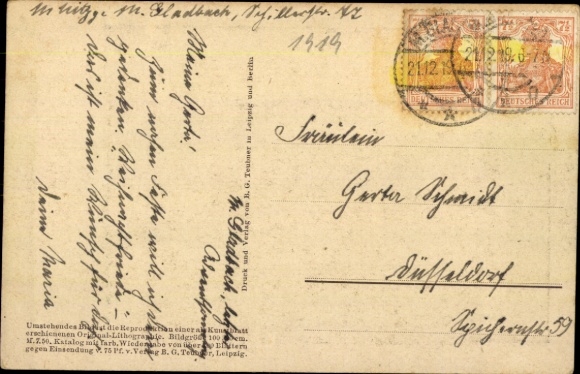 M. Gladbach, Schillerstr. 72
1919
M. Gladbach,
Meine Gerta!
Zum nahen Feste will ich dein
gedenken. "Weihnachtsfriede" –
das ist mein Wunsch für dich
Deine Maria
Druck und Verlag von B. G. Teubner in Leipzig und Berlin
Umstehendes Bild ist die Reproduktion einer als Kunstblatt
erschienenen Original-Lithographie. Bildgröße 100
M. 7.50. Katalog mit farb. Wiedergabe von über Blättern
gegen Einsendung v. 75 Pf. v. Verlag B. G. Teubner, Leipzig.
21.12.19
21.12.19.
7½
DEUTSCHES REICH
DEUTSCHES REICH
Fräulein
Gerta Schmidt
Düsseldorf
Spichernstr 59